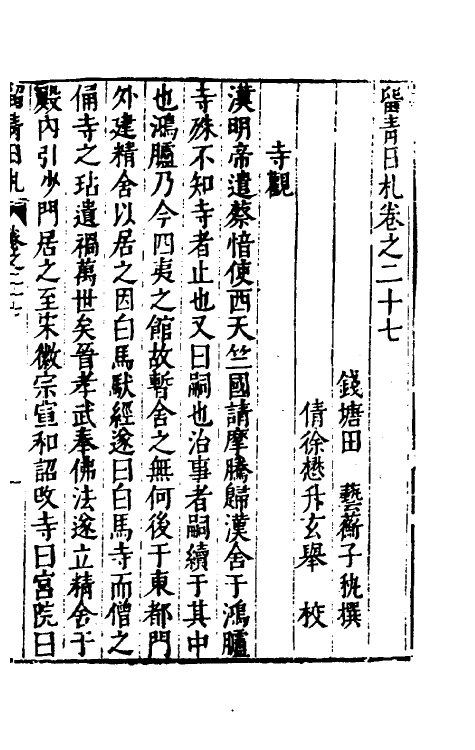 留青日札卷之二十七
錢塘田 藝蘅子秇撰
倩徐懋升玄舉 校
寺觀
漢明帝遣蔡愔使西天竺國請摩騰歸漢舍于鴻臚
寺殊不知寺者止也又曰嗣也治事者嗣續于其中
也鴻臚乃今四夷之館故暫舍之無何後于東都門
外建精舍以居之因白馬馱經遂曰白馬寺而僧之
侕寺之玷遺禍萬世矣晉孝武奉佛法遂立精舍于
殿內引沙門居之至宋徽宗宣和詔改寺曰宮院曰
留青日札 卷之二十七 一